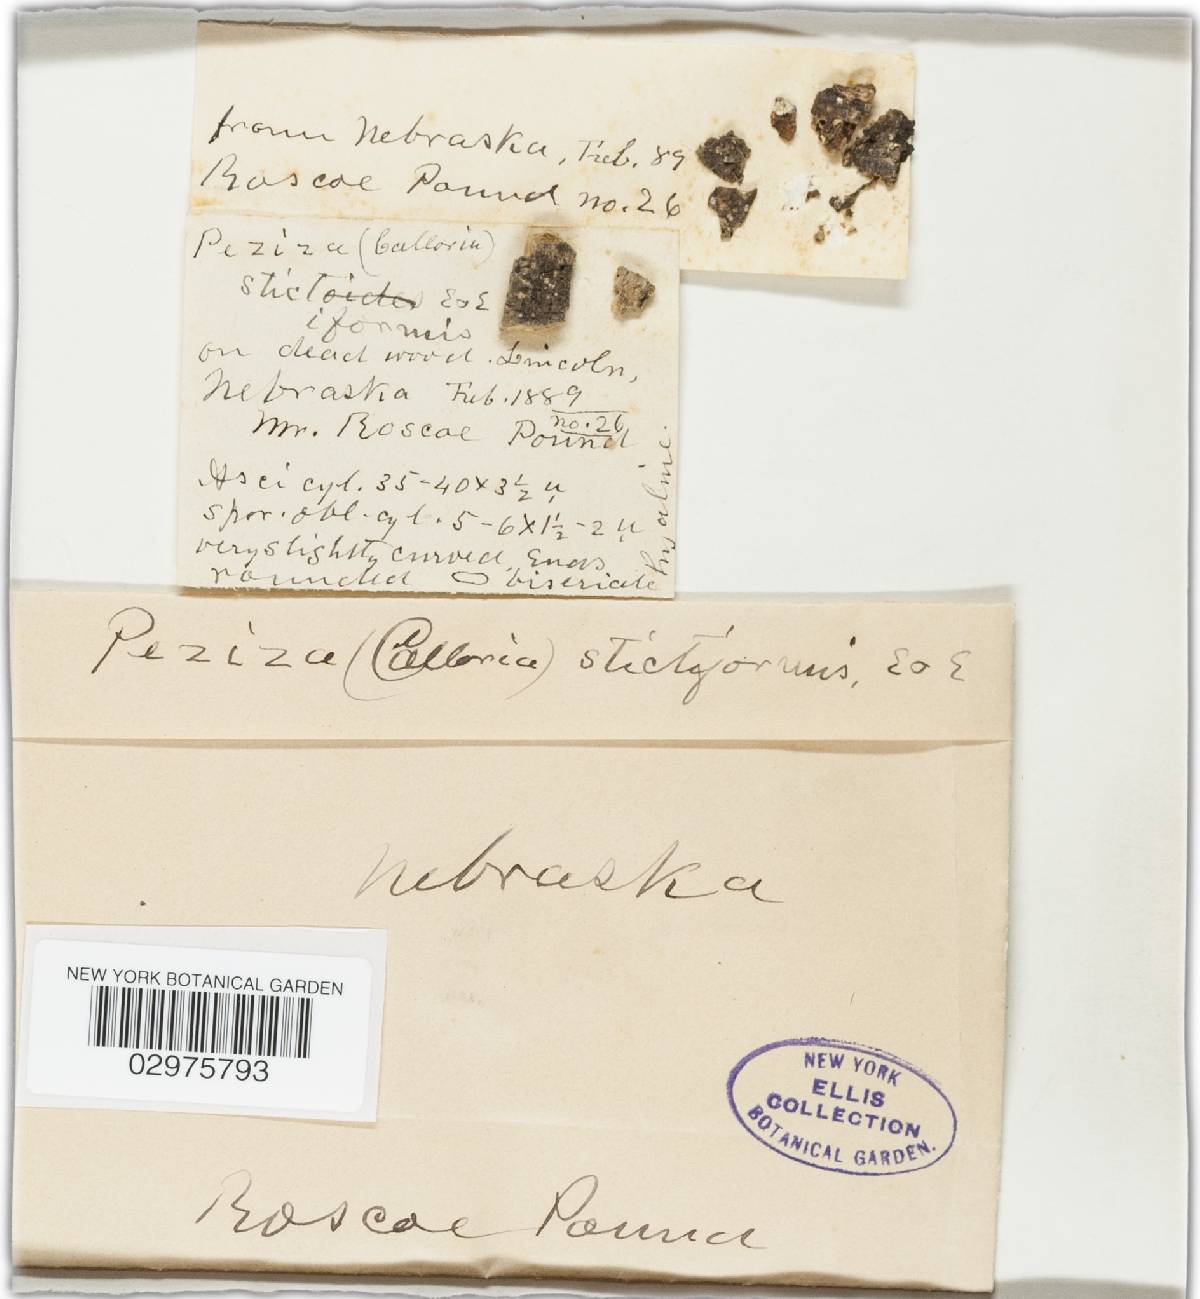 from Nebraska, Feb. 89
Roscoe Pound no. 26
Peziza (Calloria)
stictoides E & E
iformis
on dead wood. Lincoln,
Nebraska Feb. 1889
no. 26
Mr. Roscoe Pound
Asci cyl. 35-40 x 3½ µ
spor. obl. cyl. 5-6 x 1½-2 µ
very slightly curved, Ends
rounded biseriate
hyaline.
Peziza (Calloria) stictiformis, E & E
Nebraska
NEW YORK BOTANICAL GARDEN
02975793
NEW YORK
ELLIS
COLLECTION
BOTANICAL GARDEN.
Roscoe Pound